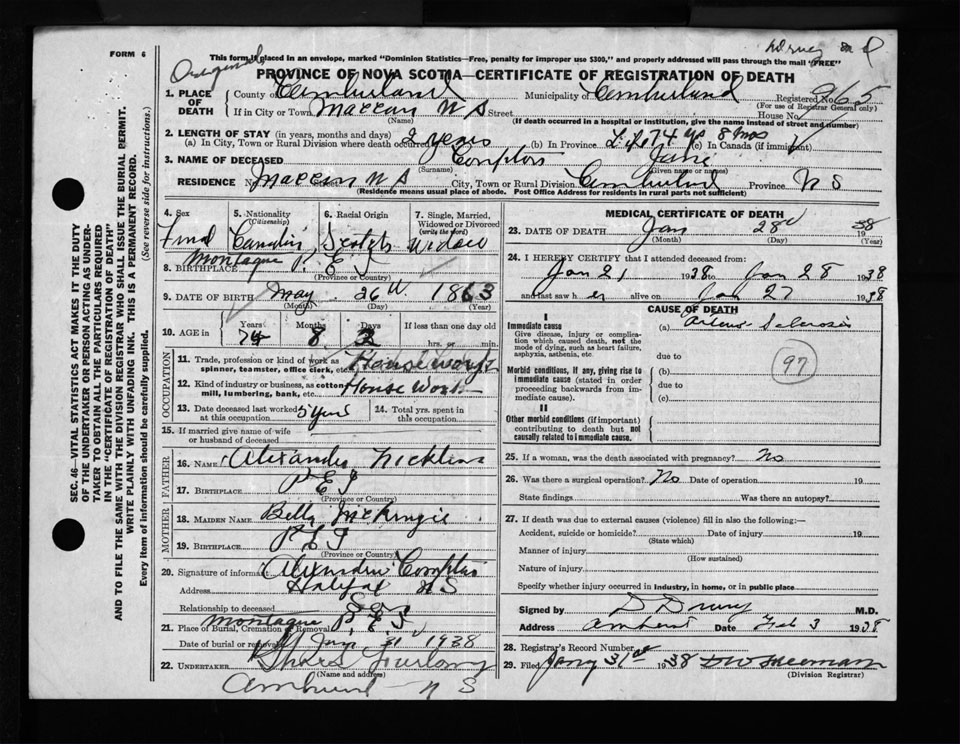 FORM 6
This form, if placed in an envelope, marked "Dominion Statistics—Free, penalty for improper use $300," and properly addressed will pass through the mail "FREE"
Original
PROVINCE OF NOVA SCOTIA—CERTIFICATE OF REGISTRATION OF DEATH
1. PLACE OF DEATH
County of Cumberland Municipality of Cumberland Registered No. 265
(For use of Registrar General only)
If in City or Town Maccan N S Street House No.
(If death occurred in a hospital or institution, give the name instead of street and number)
2. LENGTH OF STAY (in years, months and days)
(a) In City, Town or Rural Division where death occurred 2 years (b) In Province Life 74 yrs 8 mos (c) In Canada (if immigrant)
3. NAME OF DECEASED Compton Jane
(Surname) (Given name or names)
RESIDENCE No. Maccan N S Street City, Town or Rural Division Cumberland Province N S
(Residence means usual place of abode. Post Office Address for residents in rural parts not sufficient)
SEC. 46—VITAL STATISTICS ACT MAKES IT THE DUTY
OF THE UNDERTAKER OR PERSON ACTING AS UNDER-
TAKER TO OBTAIN ALL THE PARTICULARS REQUIRED
IN THE "CERTIFICATE OF REGISTRATION OF DEATH"
AND TO FILE THE SAME WITH THE DIVISION REGISTRAR WHO SHALL ISSUE THE BURIAL PERMIT.
WRITE PLAINLY WITH UNFADING INK. THIS IS A PERMANENT RECORD.
Every item of information should be carefully supplied. (See reverse side for instructions.)
4. Sex
5. Nationality (Citizenship)
6. Racial Origin
7. Single, Married, Widowed or Divorced (write the word)
Scotch Widow
Montague P. E I
8. BIRTHPLACE
(Province or Country)
9. DATE OF BIRTH May 26 1863
(Month) (Day) (Year)
10. AGE in Years Months Days If less than one day old
74 8 2 hrs. or min.
OCCUPATION
11. Trade, profession or kind of work as spinner, teamster, office clerk, etc. Housework
12. Kind of industry or business, as cotton mill, lumbering, bank, etc. House Work
13. Date deceased last worked at this occupation 5 years
14. Total yrs. spent in this occupation
15. If married give name of wife or husband of deceased
FATHER
16. NAME Alexander
17. BIRTHPLACE P E I
(Province or Country)
MOTHER
18. MAIDEN NAME McKenzie
19. BIRTHPLACE P E I
(Province or Country)
20. Signature of informant Compton
Address Halifax N S
Relationship to deceased
Montague P. E. I
21. Place of Burial, Cremation or Removal
Date of burial or removal Jan 31 1938
22. UNDERTAKER Furlong
(Name and address)
Amherst N S
MEDICAL CERTIFICATE OF DEATH
23. DATE OF DEATH Jan 28 1938
(Month) (Day) (Year)
24. I HEREBY CERTIFY that I attended deceased from:
Jan 21 1938 to Jan 28 1938
and last saw her alive on Jan 27 1938
CAUSE OF DEATH
I
Immediate cause
Give disease, injury or complication which caused death, not the mode of dying, such as heart failure, asphyxia, asthenia, etc.
(a) Arterio Sclerosis
due to
97
Morbid conditions, if any, giving rise to immediate cause (stated in order proceeding backwards from immediate cause).
(b)
due to
(c)
II
Other morbid conditions (if important) contributing to death but not causally related to immediate cause.
25. If a woman, was the death associated with pregnancy? No
26. Was there a surgical operation? No Date of operation 19
State findings Was there an autopsy?
27. If death was due to external causes (violence) fill in also the following:—
Accident, suicide or homicide? Date of injury 19
(State which)
Manner of injury
(How sustained)
Nature of injury
Specify whether injury occurred in industry, in home, or in public place
Signed by D Drury M.D.
Address Amherst Date Feb 3 1938
28. Registrar's Record Number
29. Filed Jany 31st 1938
(Division Registrar)